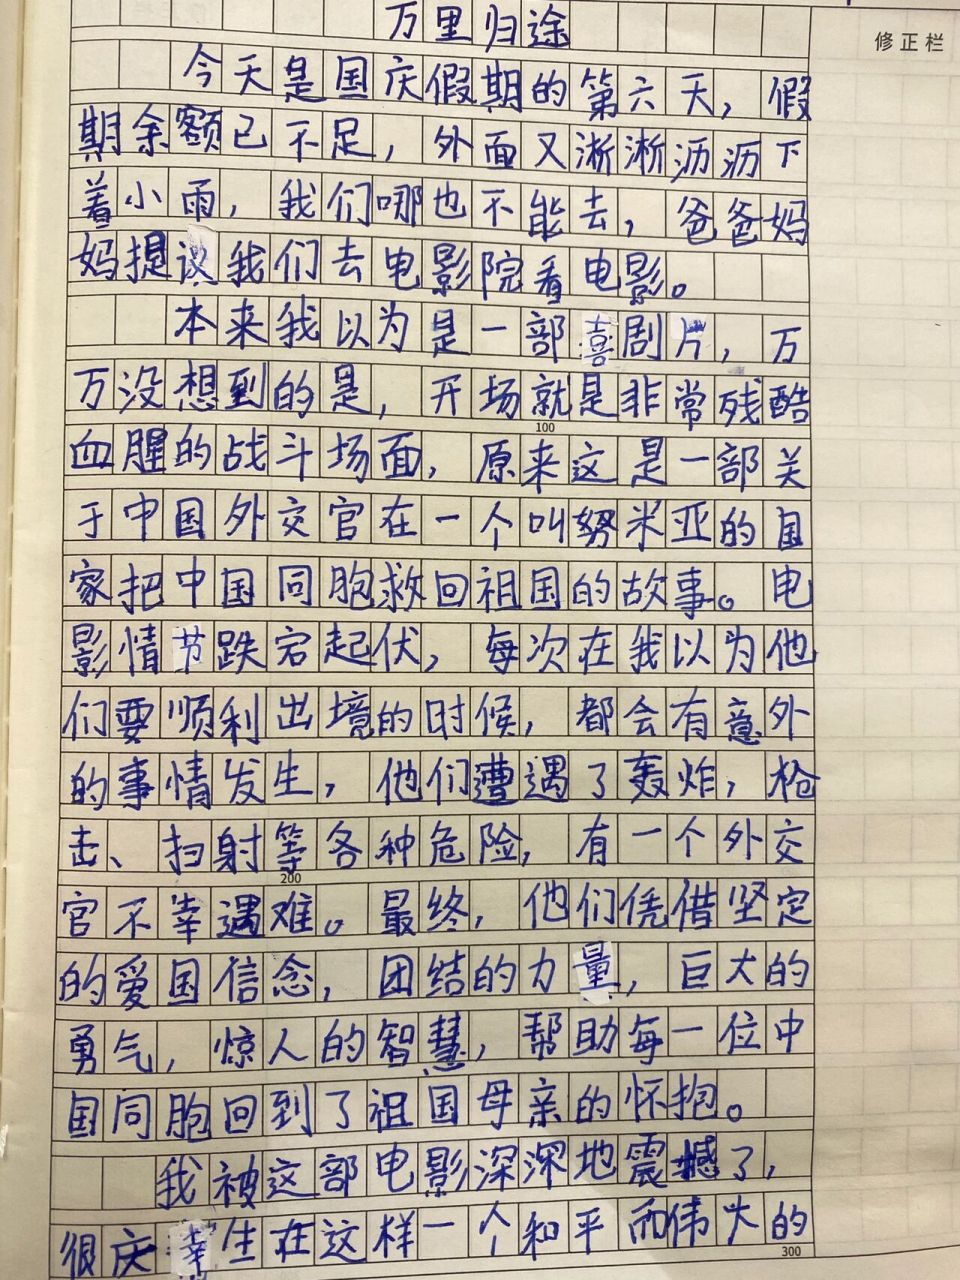 万里归途
修正栏
今天是国庆假期的第六天，假
期余额已不足，外面又淅淅沥沥下
着小雨，我们哪也不能去，爸爸妈
妈提议我们去电影院看电影。
本来我以为是一部喜剧片，万
万没想到的是，开场就是非常残酷
100
血腥的战斗场面，原来这是一部关
于中国外交官在一个叫努米亚的国
家把中国同胞救回祖国的故事。电
影情节跌宕起伏，每次在我以为他
们要顺利出境的时候，都会有意外
的事情发生，他们遭遇了轰炸，枪
击、扫射等各种危险，有一个外交
200
官不幸遇难。最终，他们凭借坚定
的爱国信念，团结的力量，巨大的
勇气，惊人的智慧，帮助每一位中
国同胞回到了祖国母亲的怀抱。
我被这部电影深深地震撼了，
很庆幸生在这样一个和平而伟大的
300